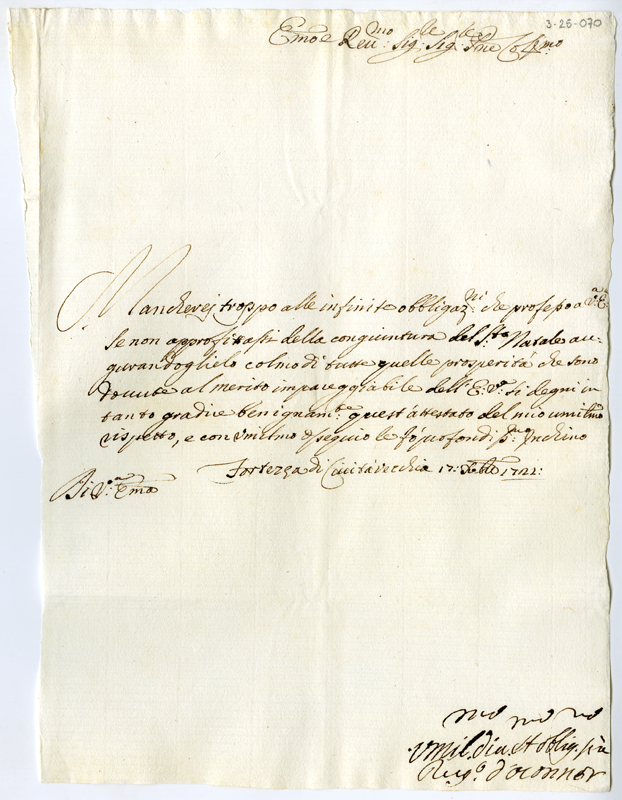 3-26-070
Em̃o e Reu:mo Sig:le Sig:le Pne Col:mo
Mancherej troppo alle infinite obbligaz:ni che professo a V:a E:
se non approfitassi della congiuntura del S:to Natale au-
gurandoglielo colmo di tutte quelle prosperità che sono
douute al merito impareggiabile dell' E: V:a si degni in
tanto gradire benignam:te quest' attestato del mio umiliss:mo
rispetto, e con umilmo osseguio le fò profondiss:mo Inchino
Fortezza di Ciuitauecchia 17: Xbre 1721:
Di V:a Em̃a
mo mo re
Vmil. diu. et oblig. ser
d'oconnor